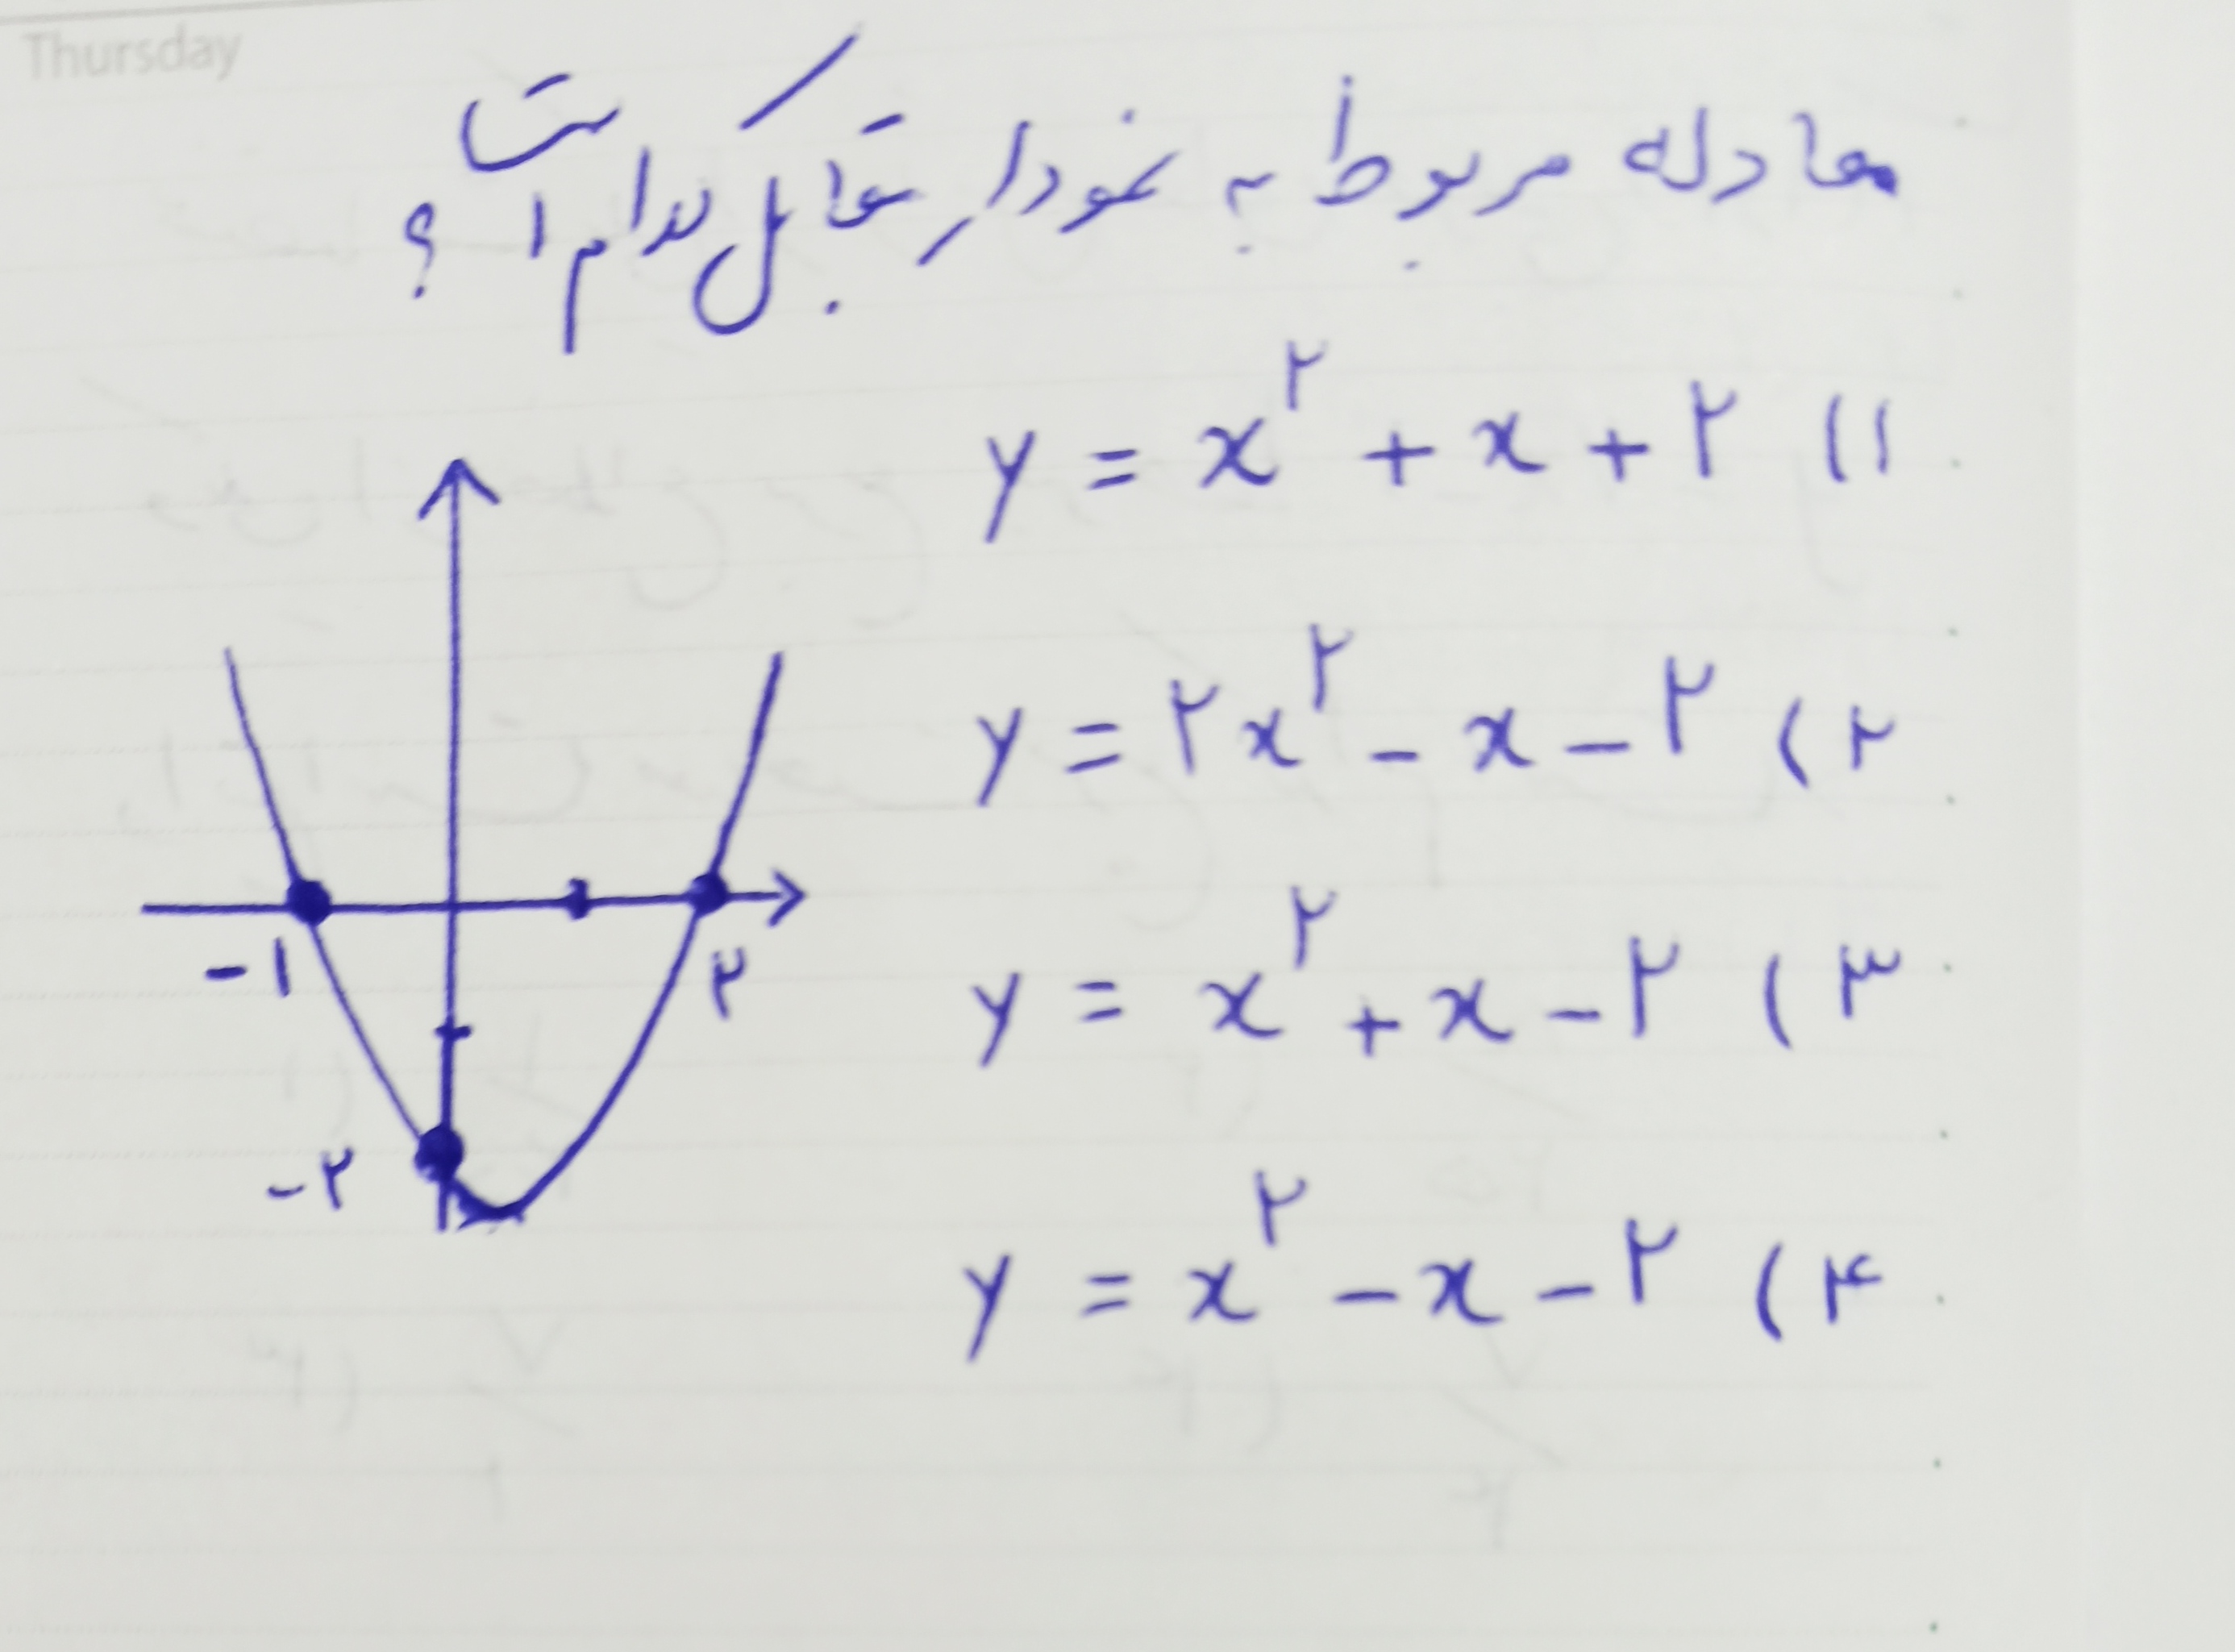 Thursday
معادله مربوط به نمودار مقابل کدام است ؟
y = x² + x + ۲ (۱
y = ۲x² - x - ۲ (۲
y = x² + x - ۲ (۳
y = x² - x - ۲ (۴
-۱
۲
-۲